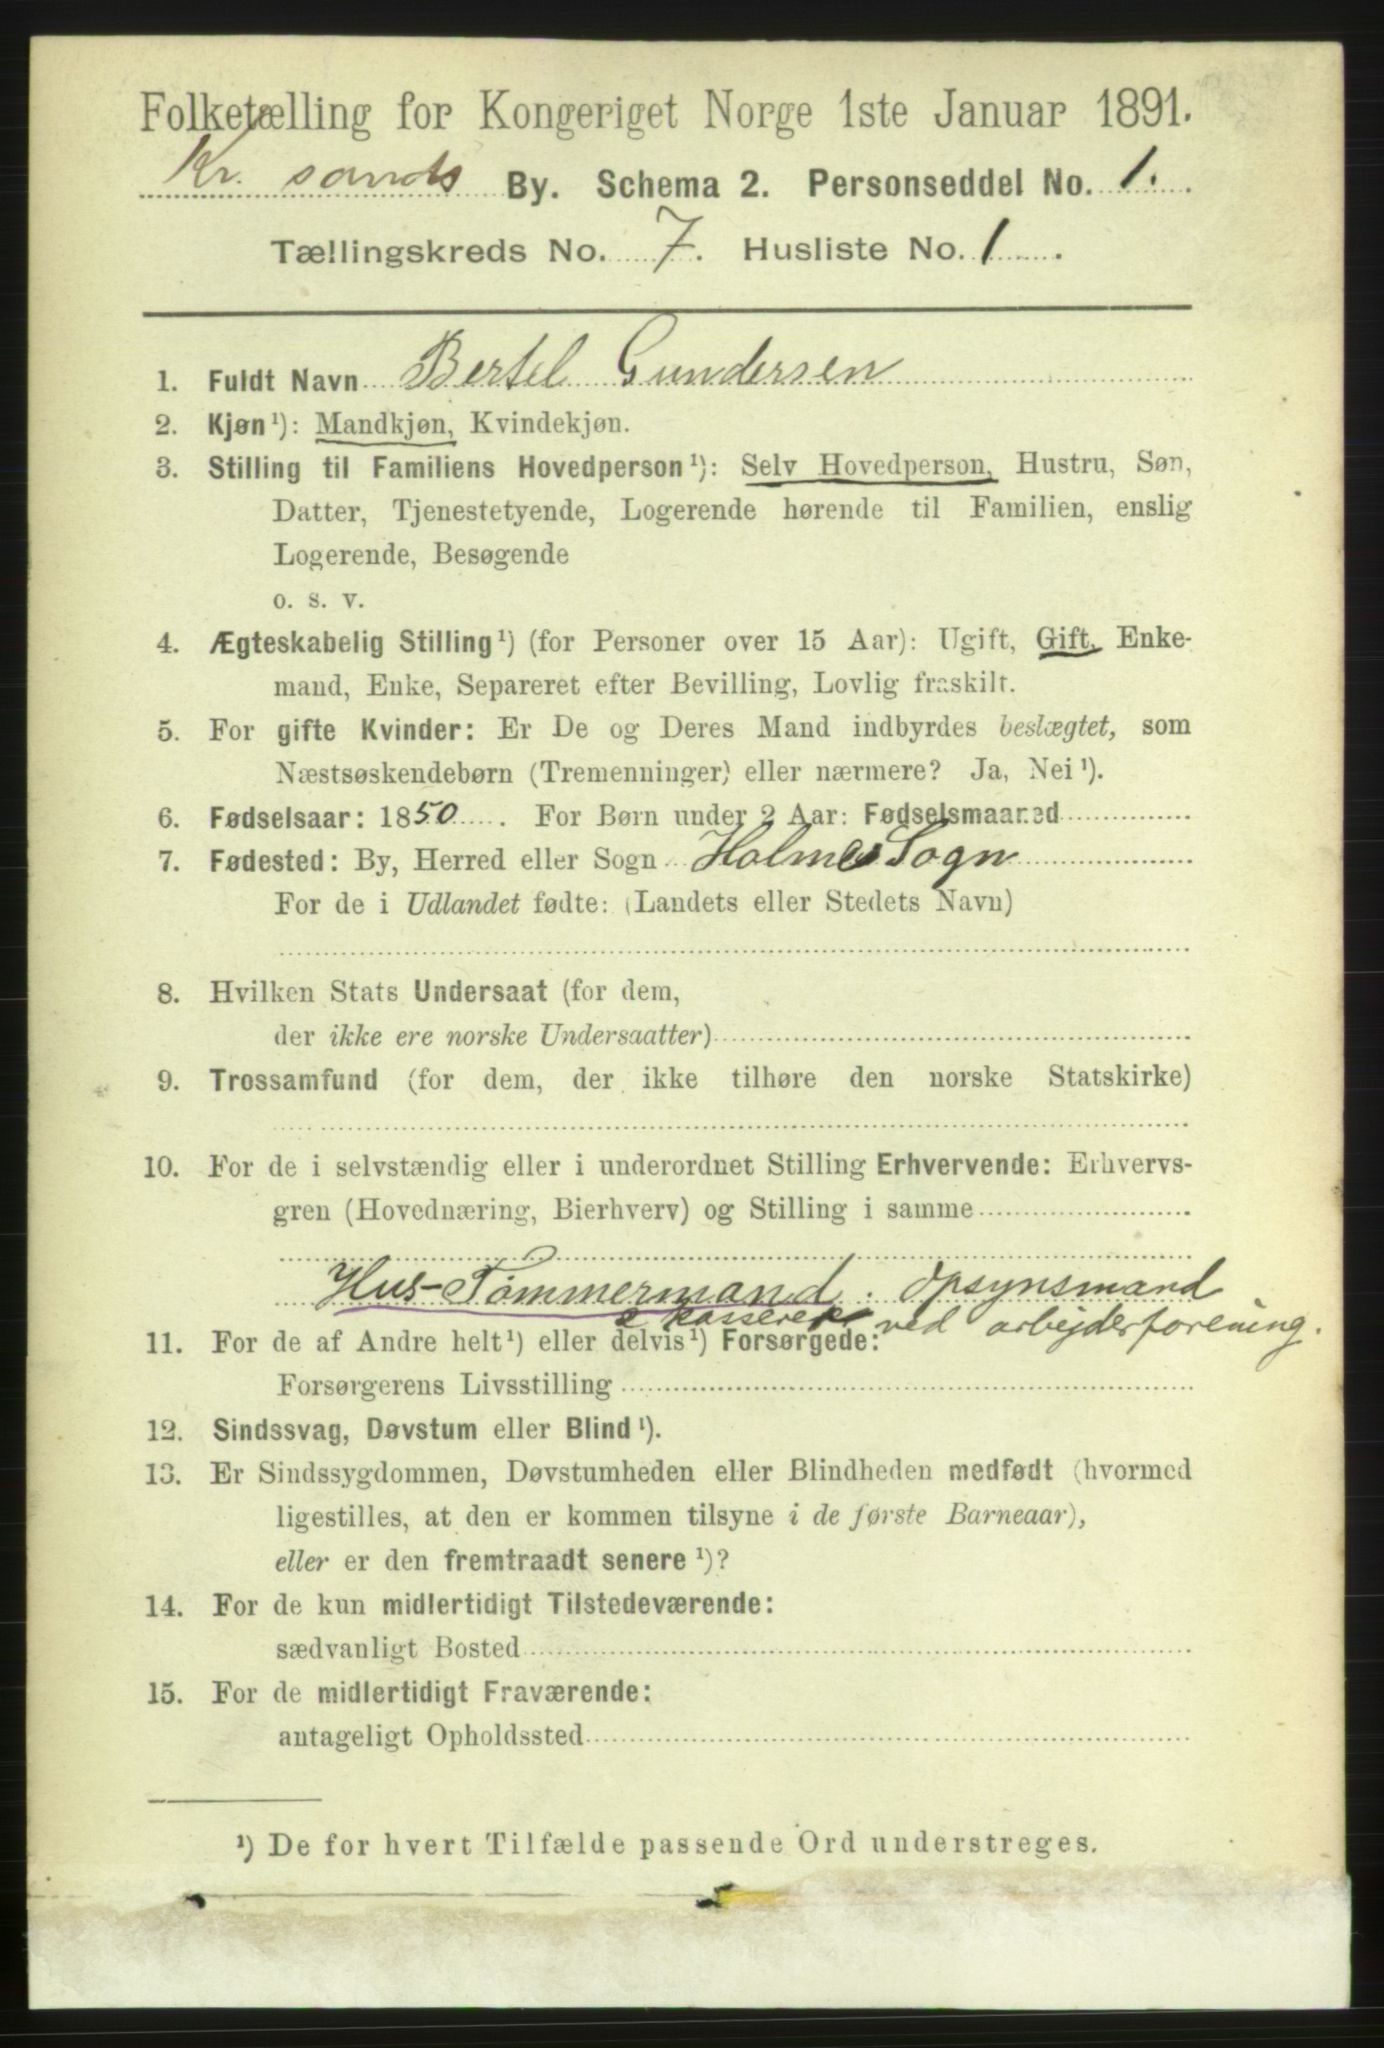 Folketælling for Kongeriget Norge 1ste Januar 1891.
Kr. sands By. Schema 2. Personseddel No. 1.
Tællingskreds No. 7. Husliste No. 1.
1. Fuldt Navn Bertel Gundersen
2. Kjøn¹): Mandkjøn, Kvindekjøn.
3. Stilling til Familiens Hovedperson¹): Selv Hovedperson, Hustru, Søn,
Datter, Tjenestetyende, Logerende hørende til Familien, enslig
Logerende, Besøgende
o. s. v.
4. Ægteskabelig Stilling¹) (for Personer over 15 Aar): Ugift, Gift, Enke-
mand, Enke, Separeret efter Bevilling, Lovlig fraskilt.
5. For gifte Kvinder: Er De og Deres Mand indbyrdes beslægtet, som
Næstsøskendebørn (Tremenninger) eller nærmere? Ja, Nei¹).
6. Fødselsaar: 1850. For Børn under 2 Aar: Fødselsmaaned
7. Fødested: By, Herred eller Sogn Holme Sogn
For de i Udlandet fødte: (Landets eller Stedets Navn)
8. Hvilken Stats Undersaat (for dem,
der ikke ere norske Undersaatter)
9. Trossamfund (for dem, der ikke tilhøre den norske Statskirke)
10. For de i selvstændig eller i underordnet Stilling Erhvervende: Erhvervs-
gren (Hovednæring, Bierhverv) og Stilling i samme
Hus-Tømmermand. Opsynsmand
& kasserer ved arbejderforening.
11. For de af Andre helt¹) eller delvis¹) Forsørgede:
Forsørgerens Livsstilling
12. Sindssvag, Døvstum eller Blind¹).
13. Er Sindssygdommen, Døvstumheden eller Blindheden medfødt (hvormed
ligestilles, at den er kommen tilsyne i de første Barneaar),
eller er den fremtraadt senere¹)?
14. For de kun midlertidigt Tilstedeværende:
sædvanligt Bosted
15. For de midlertidigt Fraværende:
antageligt Opholdssted
¹) De for hvert Tilfælde passende Ord understreges.